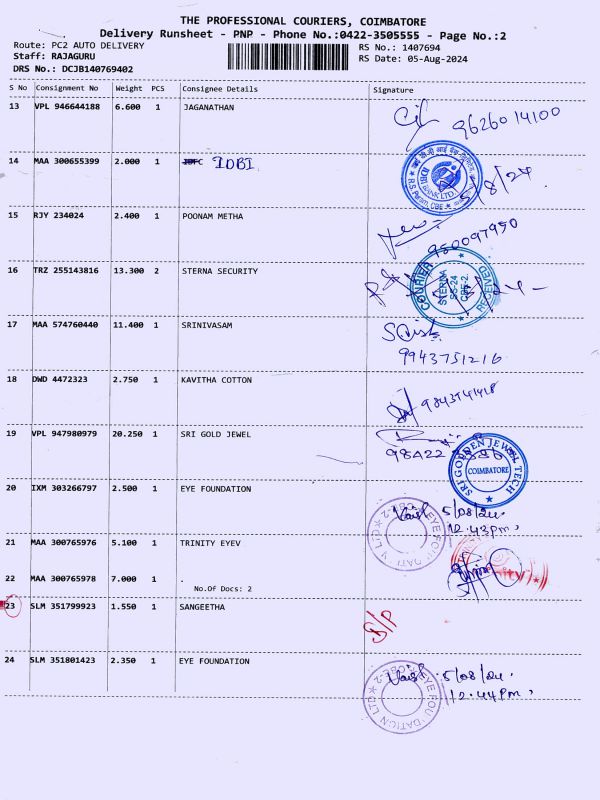 THE PROFESSIONAL COURIERS, COIMBATORE
Delivery Runsheet - PNP - Phone No.:0422-3505555 - Page No.:2
Route: PC2 AUTO DELIVERY
RS No.: 1407694
Staff: RAJAGURU
RS Date: 05-Aug-2024
DRS No.: DCJB140769402
S No Consignment No Weight PCS Consignee Details Signature
13 VPL 946644188 6.600 1 JAGANATHAN
9626014100
14 MAA 300655399 2.000 1 IDBI
IDBI BANK LTD.
5/8/24
15 RJY 234024 2.400 1 POONAM METHA
16 TRZ 255143816 13.300 2 STERNA SECURITY
COURIER
STERNA
SS-24
CBE-2.
RECEIVED
17 MAA 574760440 11.400 1 SRINIVASAM
9943751216
18 DWD 4472323 2.750 1 KAVITHA COTTON
19 VPL 947980979 20.250 1 SRI GOLD JEWEL
SRI GOLDEN JEWEL TECH
COIMBATORE
20 IXM 303266797 2.500 1 EYE FOUNDATION
5/08/24
12.43pm
21 MAA 300765976 5.100 1 TRINITY EYEV
22 MAA 300765978 7.000 1 .
No.Of Docs: 2
23 SLM 351799923 1.550 1 SANGEETHA
S/P
24 SLM 351801423 2.350 1 EYE FOUNDATION
5/08/24
12.44pm